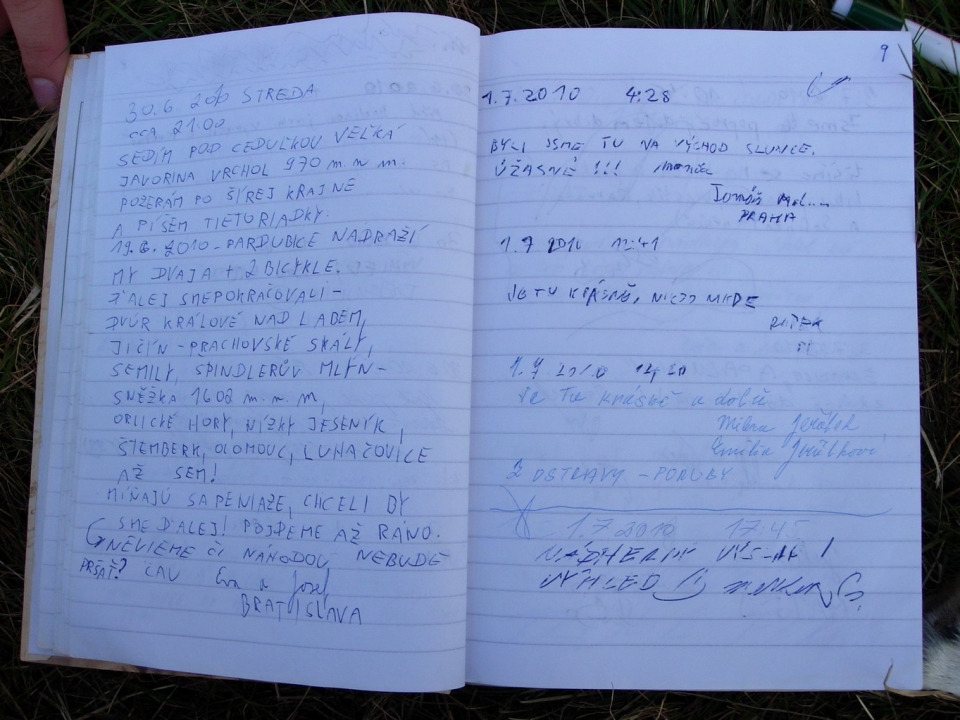 30.6 2010 STREDA
cca 21.00
SEDÍM POD CEDUĽKOU VEĽKÁ
JAVORINA VRCHOL 970 m. n. m.
POZERÁM PO ŠÍREJ KRAJNE
A PÍŠEM TIETO RIADKY.
19.6.2010 - PARDUBICE NADRAŽÍ
MY DVAJA + 2 BICYKLE.
ĎALEJ SME POKRAČOVALI -
DVŮR KRÁLOVÉ NAD LABEM,
JIČÍN - PRACHOVSKÉ SKALY,
SEMILY, ŠPINDLERŮV MLÝN -
SNĚŽKA 1602 m. n. m,
ORLICKÉ HORY, NÍZKY JESENÍK,
ŠTEMBERK, OLOMOUC, LUHAČOVICE
AŽ SEM!
MÍŇAJÚ SA PENIAZE, CHCELI BY
SME ĎALEJ! POJDEME AŽ RÁNO.
NEVIEME ČI NÁHODOU NEBUDE
PRŠAŤ? ČAU Eva a Jozef
BRATISLAVA
9
1.7.2010 4:28
BYLI JSME TU NA VÝCHOD SLUNCE.
ÚŽASNÉ !!!
Tomáš
PRAHA
1.7 2010 12:41
JE TU KRÁSNĚ,
1.7 2010
Je tu krásně a dobře
Milan Jeřábek,
Emilie Jeřábková
Z OSTRAVY - PORUBY
1.7.2010 17:45
NÁDHERNÝ
VÝHLED :)